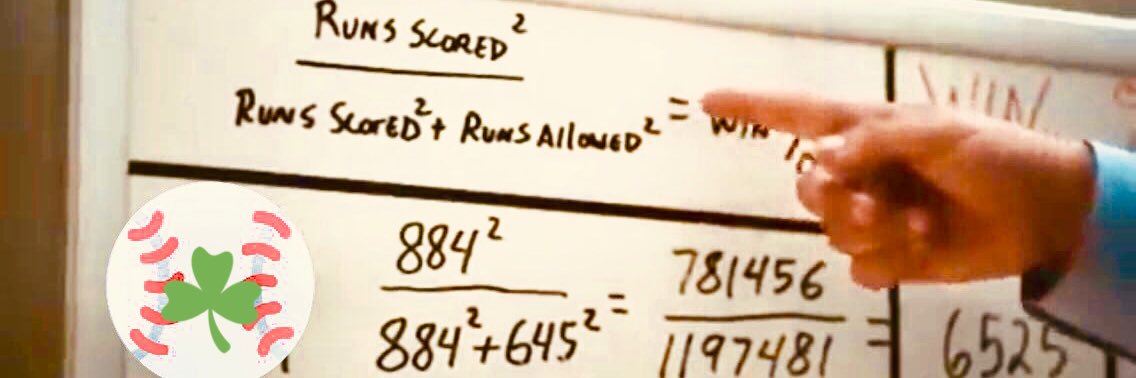 RUNS SCORED²
RUNS SCORED² + RUNS ALLOWED² = WIN
884²
884² + 645² = 781456
1197481 = 6525
WIN